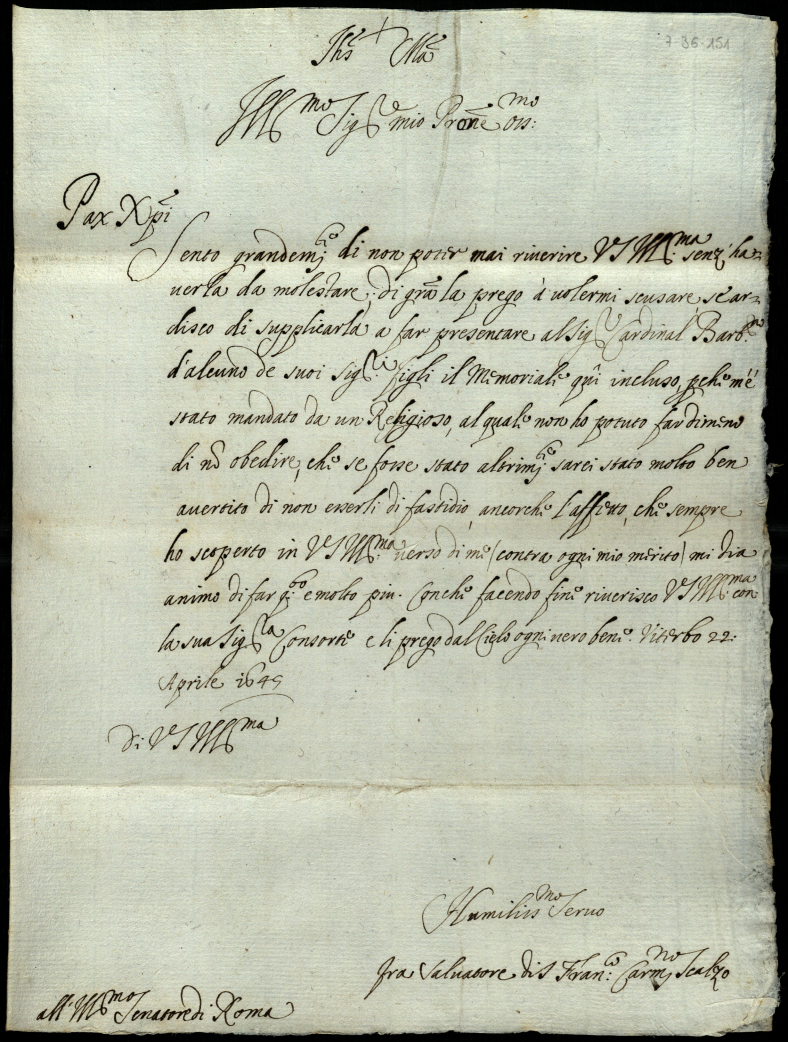 7-36-151
Jhs + Ma
Ill.mo Sig.re mio Prone oss:mo
Pax Xpi
Sento grandem.te di non poter mai riverire VS Ill.ma senz' ha=
verla da molestare; di gra la prego à volermi scusare, se ar=
disco di supplicarla a far presentare al Sig.r Cardinal Barb.no
d'alcuno de suoi Sig.ri figli il Memoriale quì incluso, pche m'é
stato mandato da un Religioso, al quale non ho potuto far dimeno
di nō obedire, che se fosse stato altrim.te sarei stato molto ben
avertito di non esserli di fastidio, ancorche l'affetto, che sempre
ho scoperto in VS Ill.ma verso di me (contra ogni mio merito) mi dia
animo di far q.to e molto piu. Con che facendo fine riverisco VS Ill.ma con
la sua Sig.ra Consorte e li prego dal Cielo ogni vero bene. Viterbo 22:
Aprile 1645
Di VS Ill.ma
Humiliss.mo Servo
fra Salvatore di S Fran.co Carm.no Scalzo
all' Ill.mo Senatore di Roma